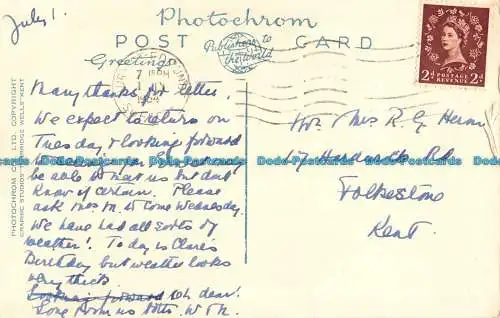 July 1
Photochrom
POST CARD
Publishers to
the World
Greetings
7 15PM
2D POSTAGE REVENUE 2D
Many thanks for letter.
We expect to return on
Tuesday & looking forward
be able to meet us but don't
know if certain. Please
ask Mrs M. to come Wednesday.
We have had all sorts of
weather! To day is Clare's
Birthday but weather looks
very thick
Looking forward Oh dear!
Love from us both
Mrs R. G.
17 Rd
Folkestone
Kent.
PHOTOCHROM CO., LTD. COPYRIGHT
GRAPHIC STUDIOS, TUNBRIDGE WELLS, KENT
Dodo-Postcards Dodo-Postcards Dodo-Postcards Dodo-Postcards